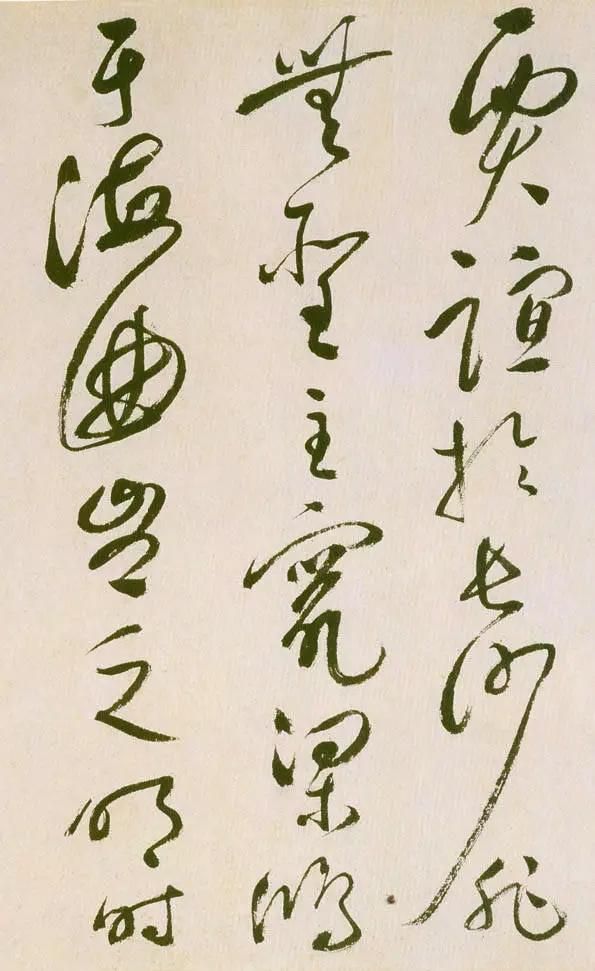 賈誼於長沙非
無聖主竄梁鴻
于海曲豈乏明时